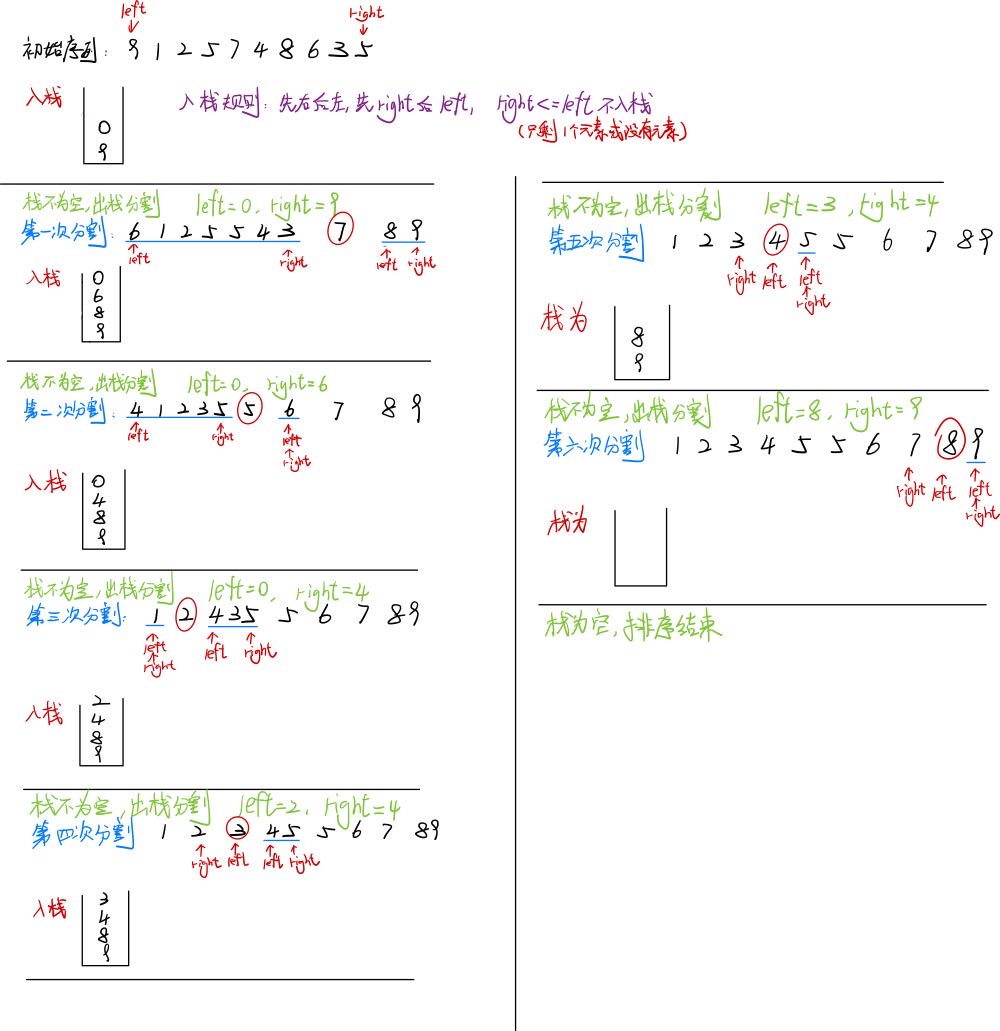 left right
初始序列: 9 1 2 5 7 4 8 6 3 5
入栈
0
9
入栈规则: 先右后左, 先right后left, right<=left不入栈
(只剩1个元素或没有元素)
栈不为空,出栈分割 left=0, right=9
第一次分割: 6 1 2 5 5 4 3 7 8 9
left right left right
入栈
0
6
8
9
栈不为空,出栈分割 left=0, right=6
第二次分割: 4 1 2 3 5 5 6 7 8 9
left right left
right
入栈
0
4
8
9
栈不为空,出栈分割 left=0, right=4
第三次分割: 1 2 4 3 5 5 6 7 8 9
left left right
right
入栈
2
4
8
9
栈不为空,出栈分割 left=2, right=4
第四次分割 1 2 3 4 5 5 6 7 8 9
right left left right
入栈
3
4
8
9
栈不为空,出栈分割 left=3, right=4
第五次分割 1 2 3 4 5 5 6 7 8 9
right left left
right
栈为
8
9
栈不为空,出栈分割 left=8, right=9
第六次分割 1 2 3 4 5 5 6 7 8 9
right left left
right
栈为
栈为空,排序结束